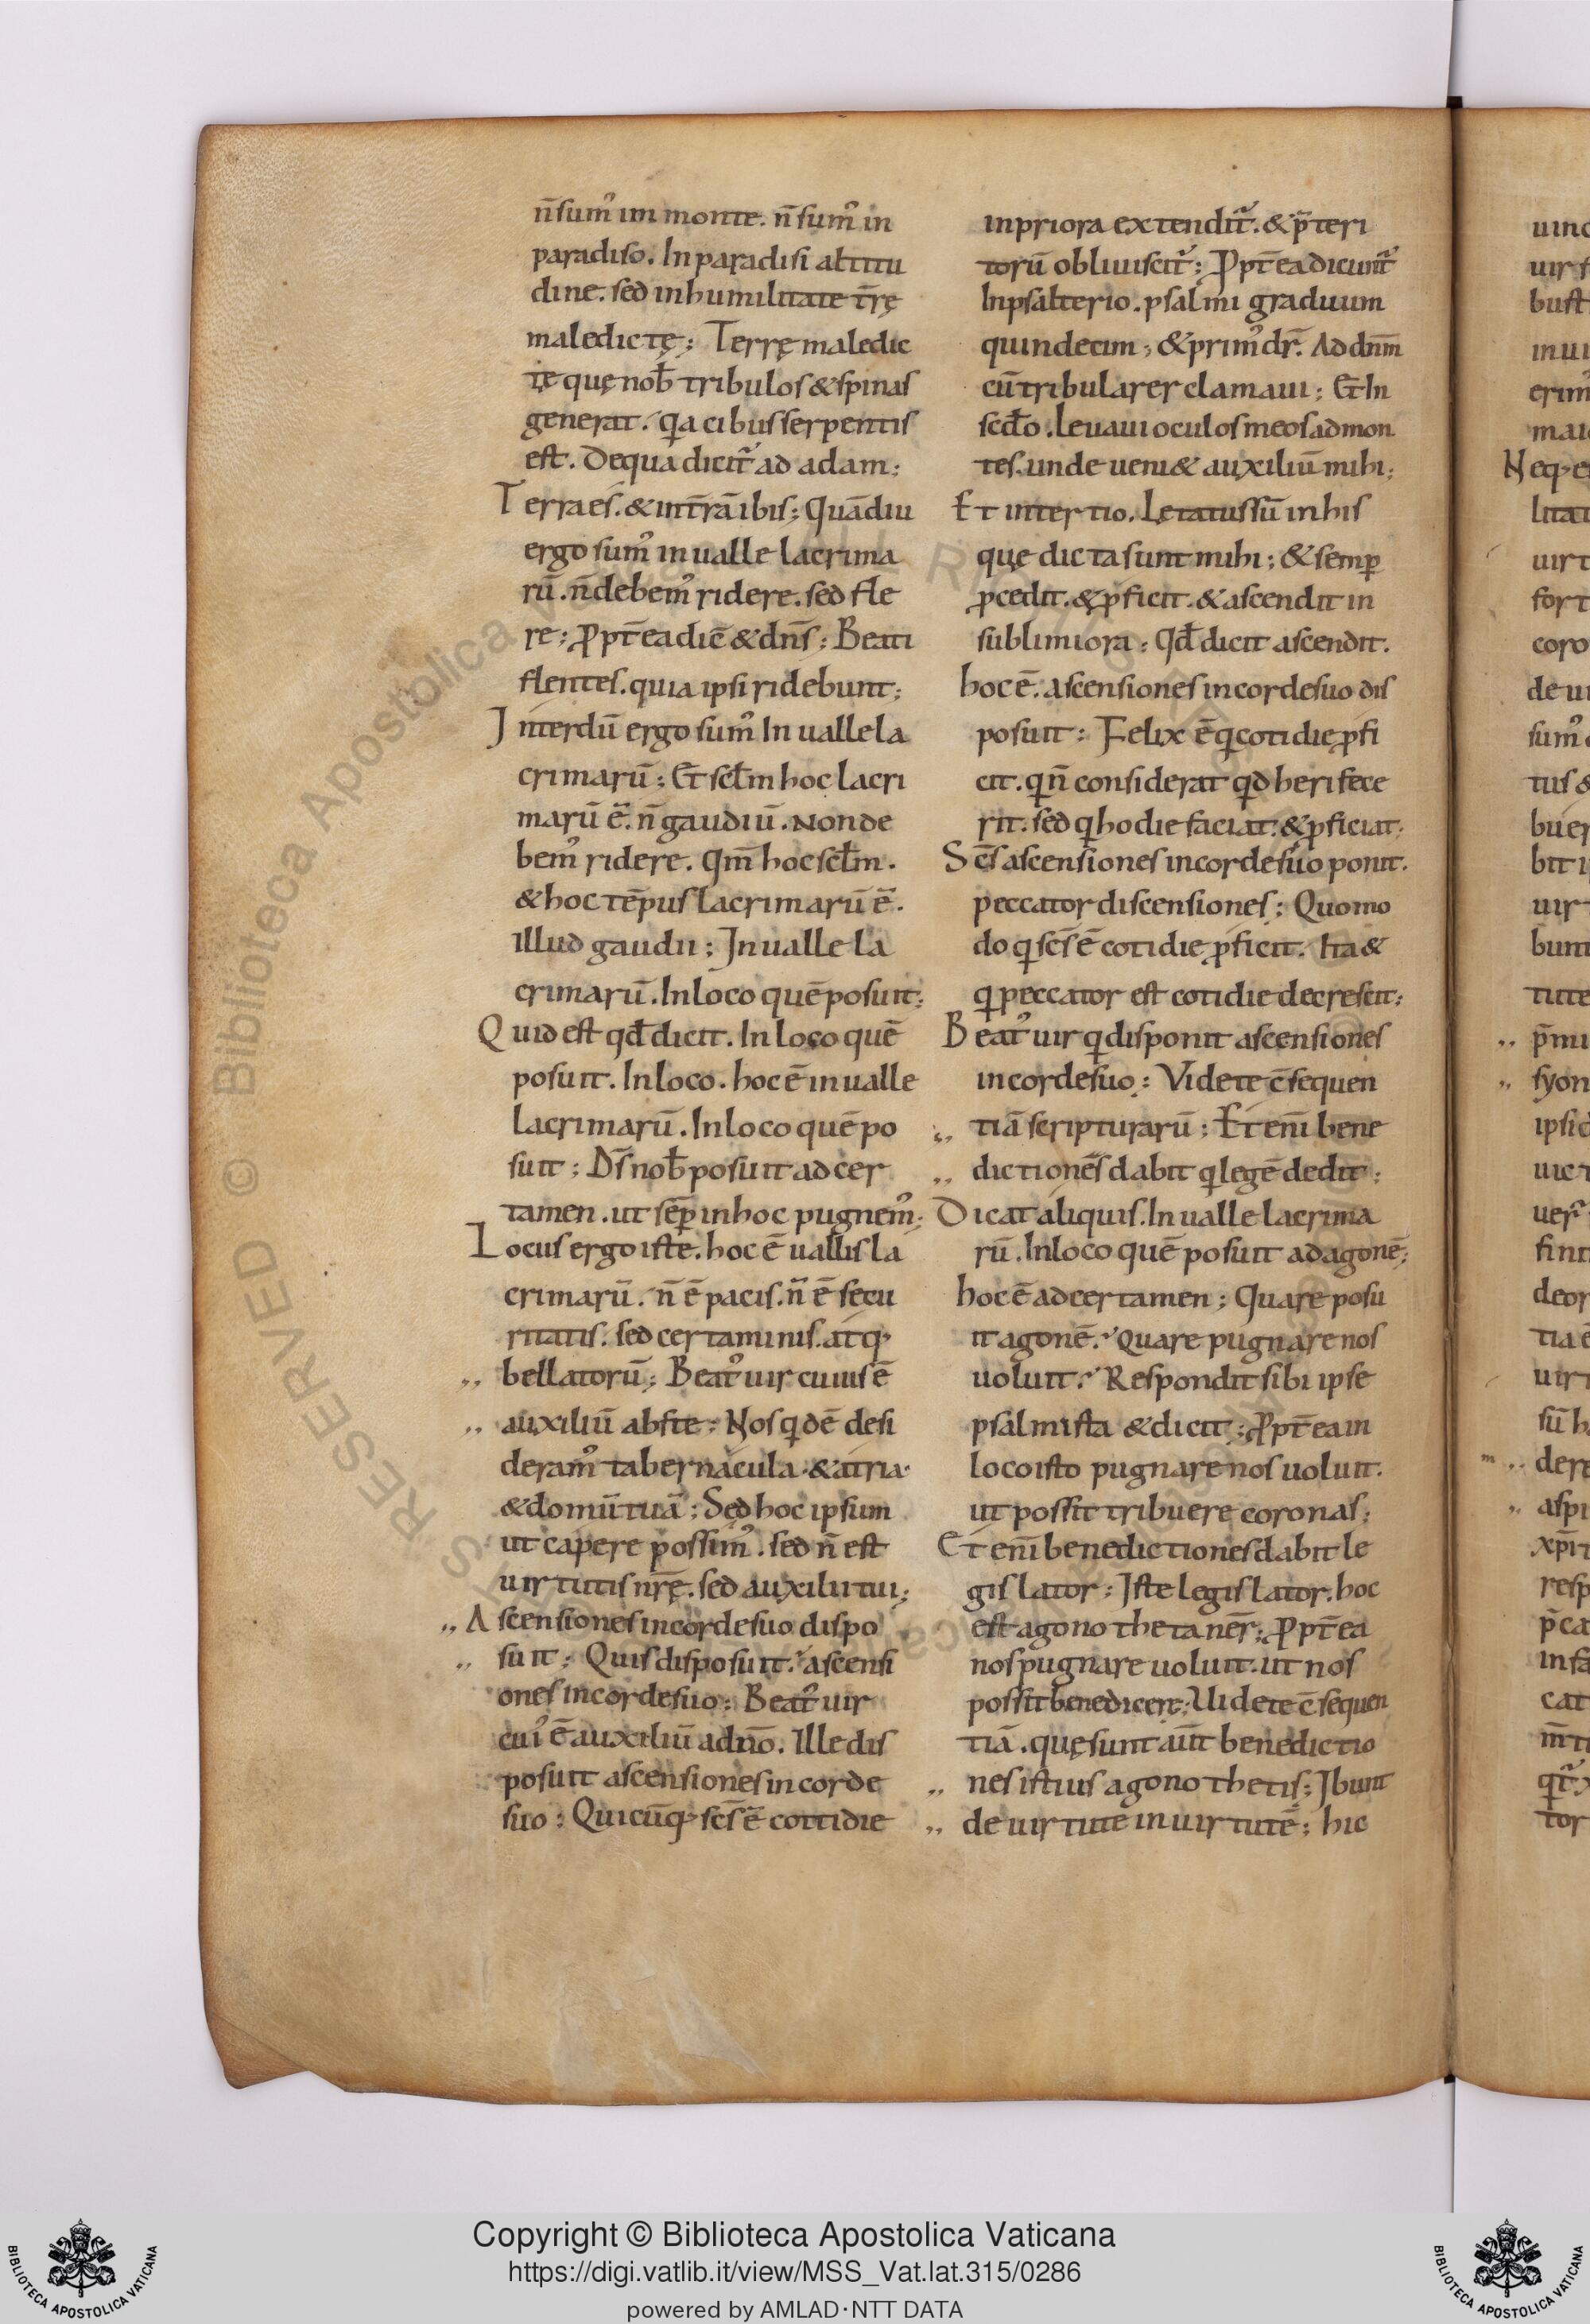 n̄ sum᾽ im monte. n̄ sum᾽ in
paradiso. In paradisi altitu
dine. sed in humilitate t̄rę
maledictę; Terrę maledic
tę quę nob̄ tribulos & spinas
generat. qa cibus serpentis
est. De qua dicit̄ ad adam;
Terra es. & in t̄rā ibis; Quādiu
ergo sum᾽ in ualle lacrima
rū. n̄ debem᾽ ridere. sed fle
re; Ppt̄ea dic̄ & dn̄s; Beati
flentes. quia ipsi ridebunt;
Interdū ergo sum᾽ In ualle la
crimarū; Et scl̄m hoc lacri
marū ē. n̄ gaudiū. Non de
bem᾽ ridere. Qm̄ hoc scl̄m.
& hoc tēpus lacrimarū ē.
Illud gaudii; In ualle la
crimarū. In loco quē posuit;
Quid est qd̄ dicit. In loco quē
posuit. In loco. hoc ē in ualle
lacrimarū. In loco quē po
suit; Ds̄ nob̄ posuit ad cer
tamen. ut sēp in hoc pugnem᾽;
Locus ergo iste. hoc ē uallis la
crimarū. n̄ ē pacis. n̄ ē secu
ritatis. sed certaminis. atq;
,, bellatorū; Beat᾽ uir cuius ē
,, auxiliū abs te; Nos qdē desi
deram᾽ tabernacula. & atria.
& domū tuā; Sed hoc ipsum
ut capere possim᾽. sed n̄ est
uirtutis nr̄ę. sed auxilii tui;
,, Ascensiones in corde suo dispo
,, suit; Quis disposuit. ascensi
ones in corde suo; Beat᾽ uir
cui᾽ ē auxiliū a dn̄o. Ille dis
posuit ascensiones in corde
suo; Quicūq; scs̄ ē cottidie
in priora extendit̄. & p̄teri
torū obliuiscit̄; Ppt̄ea dicunt̄
In psalterio. psalmi graduum
quindecim; & prim᾽ dr̄. Ad dn̄m
cū tribularer clamaui; Et In
scd̄o. Leuaui oculos meos ad mon
tes. unde ueni& auxiliū mihi;
Et in tertio. Lętatus sū in his
quę dicta sunt mihi; & semp
pcedit. & pficit. & ascendit in
sublimiora; Qd̄ dicit ascendit.
hoc ē. ascensiones in corde suo dis
posuit; Felix ē q cotidie pfi
cit. q n̄ considerat qd heri fece
rit. sed q hodie faciat. & pficiat;
Scs̄ ascensiones in corde suo ponit.
peccator discensiones; Quomo
do q scs̄ ē cotidie pficit. Ita &
q peccator est cotidie decrescit;
Beat᾽ uir q disponit ascensiones
in corde suo; Videte c̄sequen
,, tiā scripturarū; Et eni̅ bene
,, dictionēs dabit q legē dedit;
Dicat aliquis. In ualle lacrima
rū. In loco quē posuit ad agonē;
hoc ē ad certamen; Quare posu
it agonē. Quare pugnare nos
uoluit. Respondit sibi ipse
psalmista & dicit; Ppt̄ea in
loco isto pugnare nos uoluit.
ut possit tribuere coronas;
Et eni̅ benedictiones dabit le
gislator; Iste legislator. hoc
est agonotheta nēr; Ppt̄ea
nos pugnare uoluit. ut nos
possit benedicere; Uidete c̄sequen
tiā. quę sunt aut̄ benedictio
,, nes istius agonothetis; Ibunt
,, de uirtutē in uirtutē; hic
Copyright © Biblioteca Apostolica Vaticana
https://digi.vatlib.it/view/MSS_Vat.lat.315/0286
powered by AMLAD·NTT DATA
BIBLIOTECA APOSTOLICA VATICANA
BIBLIOTECA APOSTOLICA VATICANA